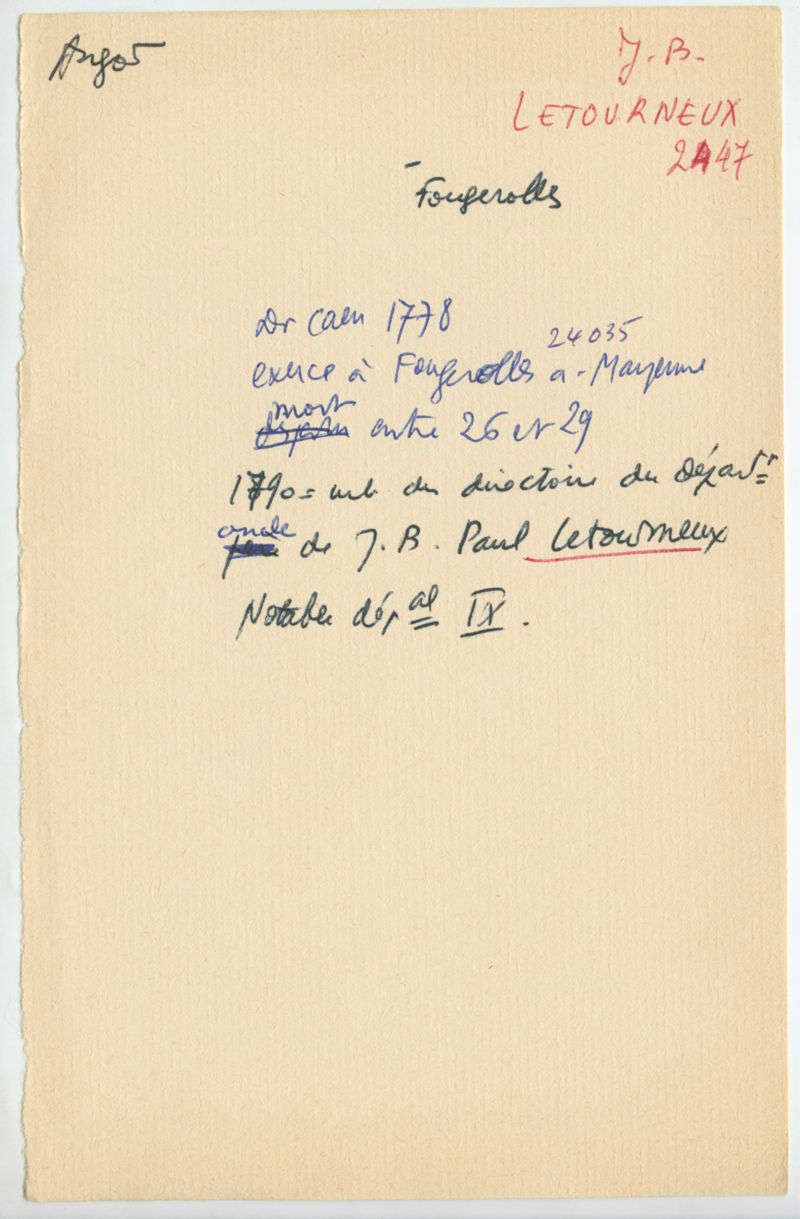 Angot
J. B.
LETOURNEUX
2447
Fougerolles
Dr Caen 1778
24035
exerce à Fougerolles a - Mayenne
mort
entre 26 et 29
1790 = mb du directoire du Départt
oncle
de J. B. Paul Letourneux
Notable dépal IX.